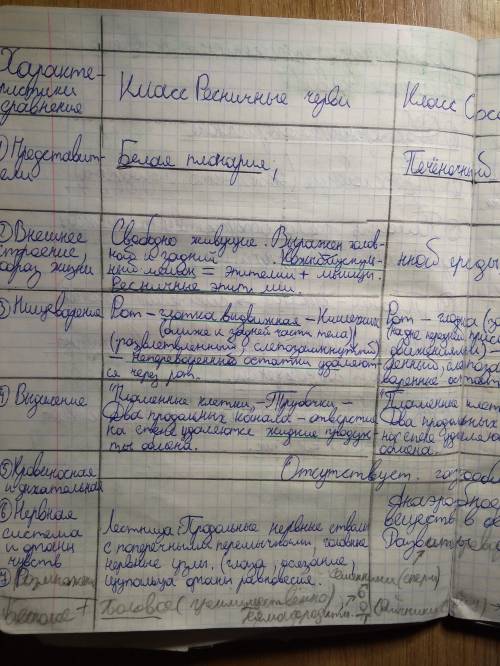 Характе-
ристики
сравнение
Класс Ресничные черви
Класс Сосо
1) Представит-
ели
Белая планария,
Печёночный
2) Внешнее
строение,
образ жизни
Свободно живущие. Выражен голов-
ной и задний. Кожномускуль-
ный мешок = эпителии + мышцы.
Ресничные эпителии.
нной среды
3) Пищеварение
Рот – глотка выдвижная – Кишечник
(ближе к задней части тела)
(разветвленный, слепозамкнутый)
– непереваренные остатки удаляют-
ся через рот.
Рот – глотка (
4) Выделение
"Пламенные клетки, – Трубочки, –
Два продольных канала – отверстия
на спине удаляются жидкие продук-
ты обмена.
"Пламенные клетк
Два продольных
на спине удаляют
обмена.
5) Кровеносная
и дыхательная
Отсутствует. газооб
Анаэробное
веществ в
6) Нервная
система
и органы
чувств
Лестница. Продольные нервные стволы
с поперечными перемычками, головные
нервные узлы, (глаза, осязание,
щупальца органы равновесия.
7) Размножен
бесполое +
Половое (преимущественно)
гермафродиты.